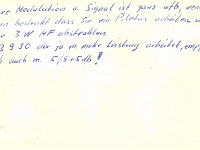 Modulation u. Signal ist ganz ufb, wenn
bedenkt dass Sie ein Piloten arbeiten u
3 W HF abstrahlen.
B 930 der ja m. mehr Leistung arbeitet, emp
auch m. 5/9+5db!